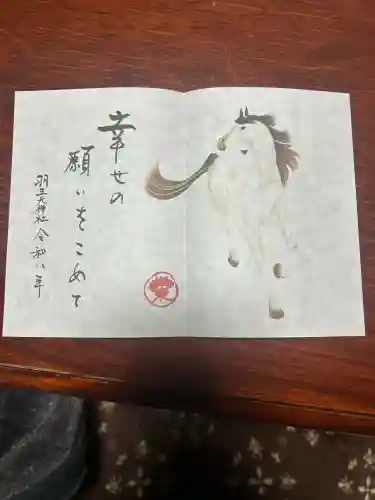 幸せの
願いをこめて
羽玉天神社 令和八年